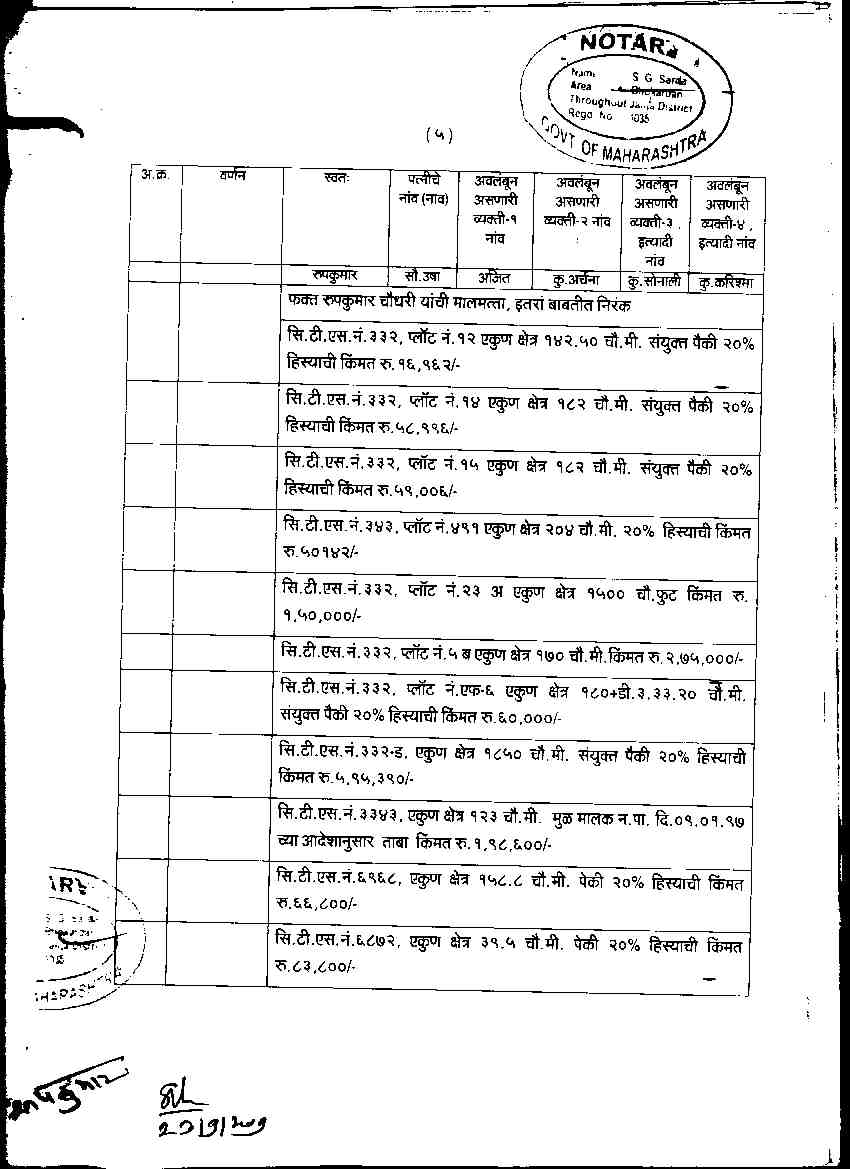 NOTARY
Name S G Sarda
Area Bhokardan
Throughout Jalna District
Regd No 1035
GOVT OF MAHARASHTRA
(५)
अ.क्र. वर्णन स्वतः पत्नीचे नांव (नाव) अवलंबून असणारी व्यक्ती-१ नांव अवलंबून असणारी व्यक्ती-२ नांव अवलंबून असणारी व्यक्ती-३, इत्यादी नांव अवलंबून असणारी व्यक्ती-४, इत्यादी नांव
रुपकुमार सौ.उषा अजित कु.अर्चना कु.सोनाली कु.करिश्मा
फक्त रुपकुमार चौधरी यांची मालमत्ता, इतरां बाबतीत निरंक
सि.टी.एस.नं.३३२, प्लॉट नं.१२ एकुण क्षेत्र १४२.५० चौ.मी. संयुक्त पैकी २०%
हिस्याची किंमत रु.१६,९६२/-
सि.टी.एस.नं.३३२, प्लॉट नं.१४ एकुण क्षेत्र १८२ चौ.मी. संयुक्त पैकी २०%
हिस्याची किंमत रु.५८,९९६/-
सि.टी.एस.नं.३३२, प्लॉट नं.१५ एकुण क्षेत्र १८२ चौ.मी. संयुक्त पैकी २०%
हिस्याची किंमत रु.५९,००६/-
सि.टी.एस.नं.३४३, प्लॉट नं.४९१ एकुण क्षेत्र २०४ चौ.मी. २०% हिस्याची किंमत
रु.५०१४२/-
सि.टी.एस.नं.३३२, प्लॉट नं.२३ अ एकुण क्षेत्र १५०० चौ.फुट किंमत रु.
१,५०,०००/-
सि.टी.एस.नं.३३२, प्लॉट नं.५ ब एकुण क्षेत्र १७० चौ.मी.किंमत रु.२,७५,०००/-
सि.टी.एस.नं.३३२, प्लॉट नं.एफ-६ एकुण क्षेत्र १८०+डी.३,३३.२० चौ.मी.
संयुक्त पैकी २०% हिस्याची किंमत रु.६०,०००/-
सि.टी.एस.नं.३३२-ड, एकुण क्षेत्र १८५० चौ.मी. संयुक्त पैकी २०% हिस्याची
किंमत रु.५,९५,३९०/-
सि.टी.एस.नं.३३४३, एकुण क्षेत्र १२३ चौ.मी. मुळ मालक न.पा. दि.०९.०१.९७
च्या आदेशानुसार ताबा किंमत रु.१,९८,६००/-
सि.टी.एस.नं.६९६८, एकुण क्षेत्र १५८.८ चौ.मी. पेकी २०% हिस्याची किंमत
रु.६६,८००/-
सि.टी.एस.नं.६८७२, एकुण क्षेत्र ३९.५ चौ.मी. पेकी २०% हिस्याची किंमत
रु.८३,८००/-
रुपकुमार